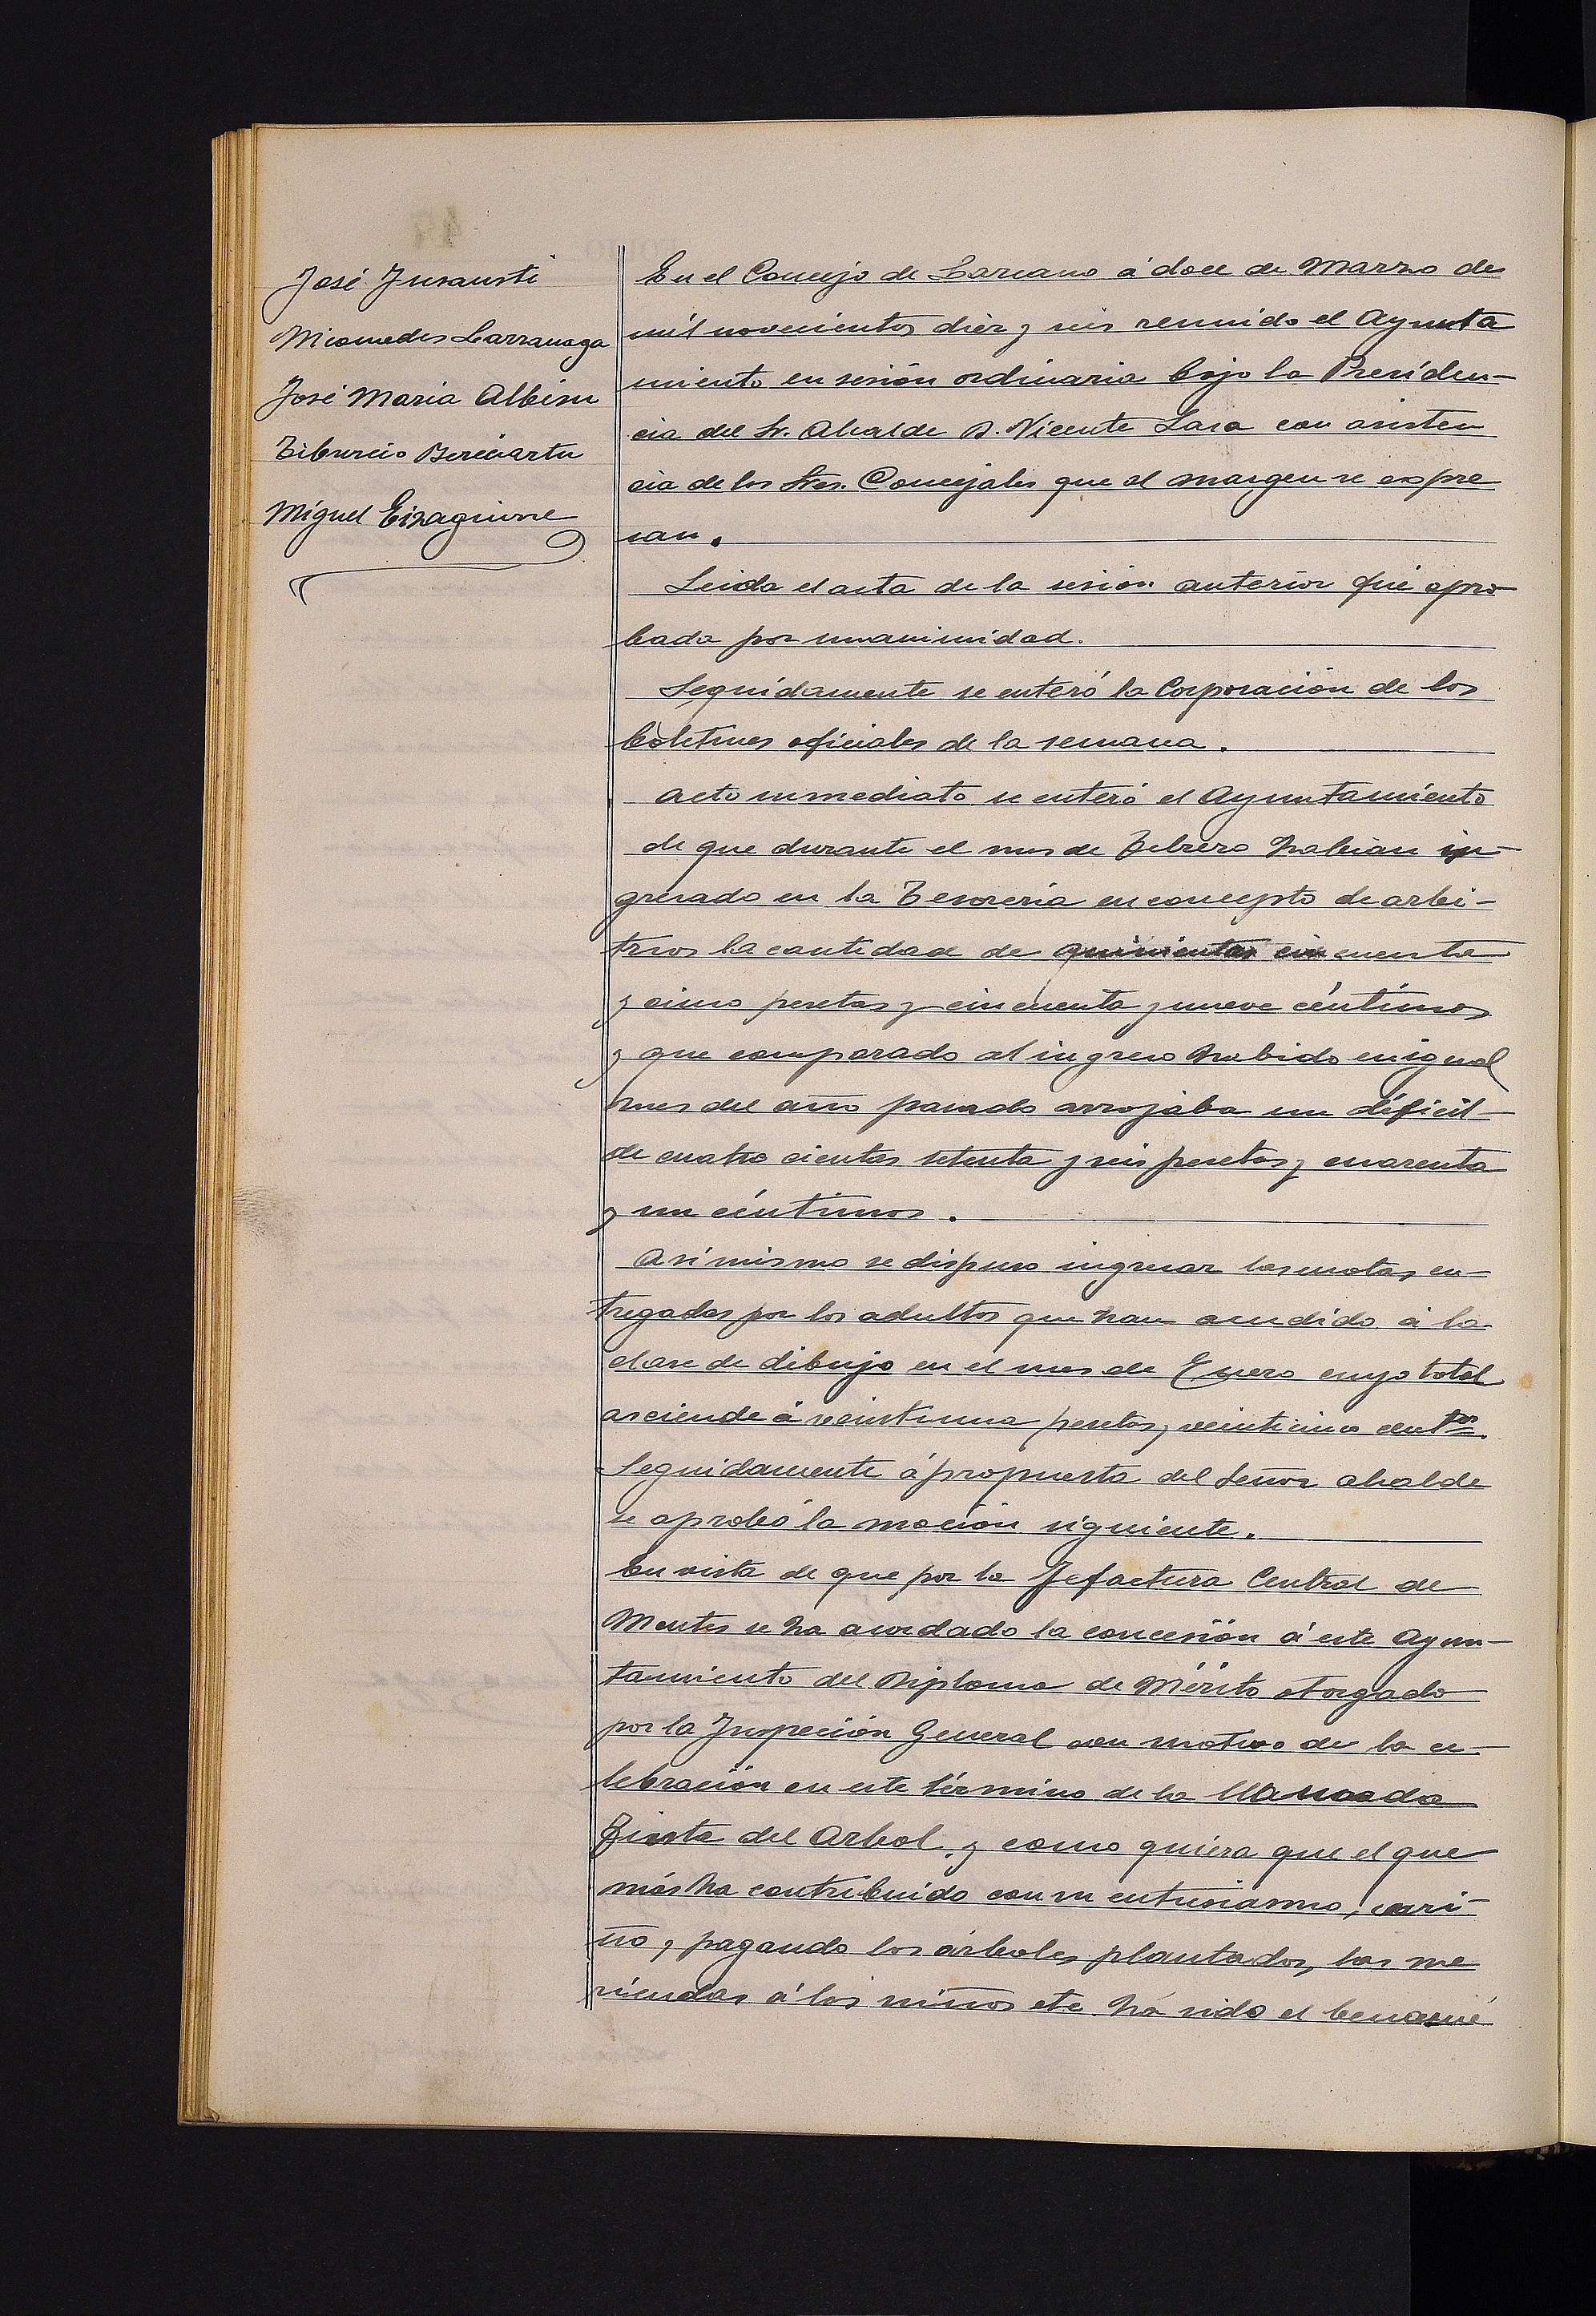 José Insausti
Nicomedes Larrañaga
José Maria Albisu
Tiburcio Bereciartu
Miguel Eizaguirre
En el Concejo de Lazcano á doce de Marzo de
mil novecientos diez y seis reunido el Ayunta
miento en sesión ordinaria bajo la Presiden-
cia del Sr. Alcalde D. Vicente Lasa con asisten
cia de los Sres. Concejales que al margen se expre
san.
Leida el acta de la sesión anterior fué apro
bada por unanimidad.
Seguidamente se enteró la Corporación de los
boletines oficiales de la semana.
Acto inmediato se enteró el Ayuntamiento
de que durante el mes de Febrero habian in-
gresado en la Tesoreria en concepto de arbi-
trios la cantidad de quinientas cincuenta
y cinco pesetas y cincuenta y nueve céntimos
y que comparado al ingreso habido en igual
mes del año pasado arrojaba un déficit
de cuatro cientas setenta y seis pesetas y cuarenta
y un céntimos.
Asi mismo se dispuso ingresar las cuotas en-
tregadas por los adultos que han acudido á la
clase de dibujo en el mes de Enero cuyo total
asciende á veintiuna pesetas y veinticinco centos.
Seguidamente á propuesta del Señor alcalde
se aprobó la moción siguiente.
En vista de que por la Jefactura Central de
Montes se ha acordado la concesión á este Ayun-
tamiento del Diploma de Mérito otorgado
por la Inspeción General con motivo de la ce-
lebración en este término de la llamada
Fiesta del Arbol, y como quiera que el que
más ha contribuido con su entusiasmo, cari-
ño y pagando los árboles plantados, las me
riendas á los niños etc. há sido el benemé